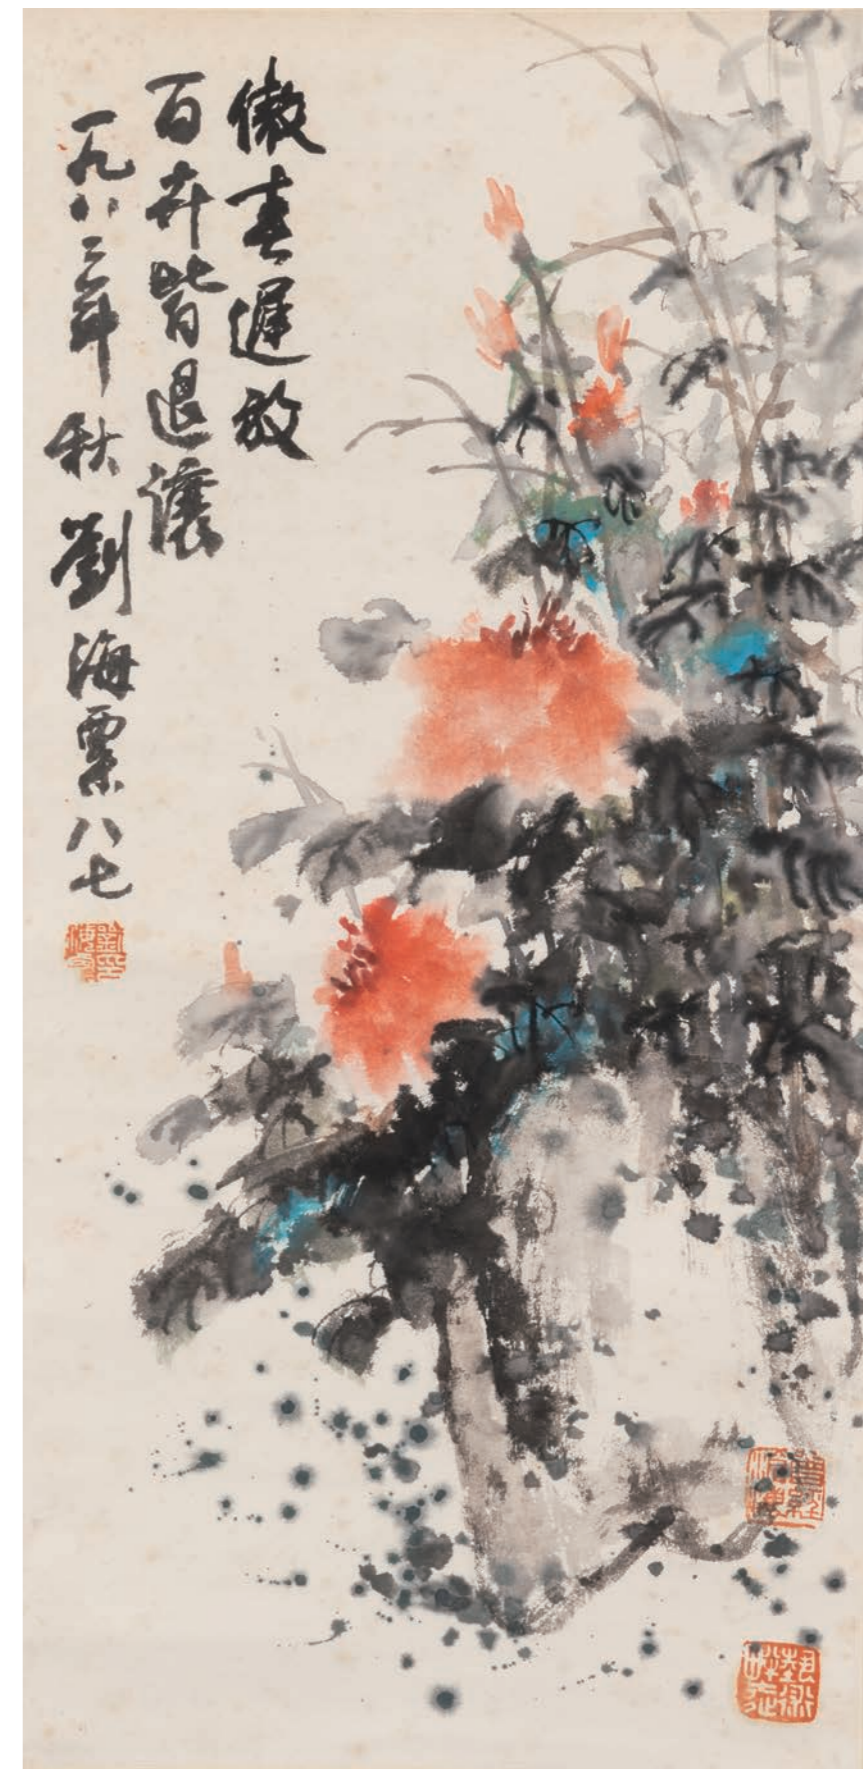 傲春遲放
百卉皆退讓
一九八二年秋 劉海粟八七
曾經滄海